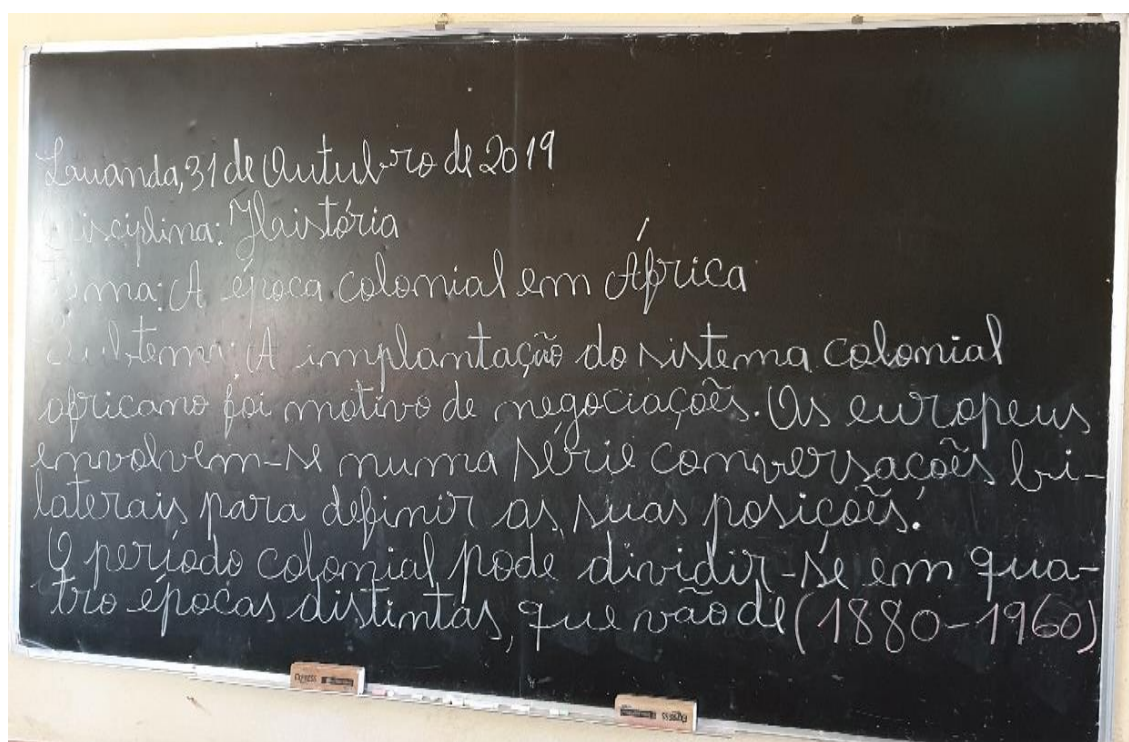 Luanda, 31 de Outubro de 2019
Disciplina: História
Tema: A época colonial em África
Subtema: A implantação do sistema colonial
africano foi motivo de negociações. Os europeus
envolvem-se numa série conversações bi-
laterais para definir as suas posições.
O período colonial pode dividir-se em qua-
tro épocas distintas, que vão de (1880-1960)
EXPRESS
EXPRESS